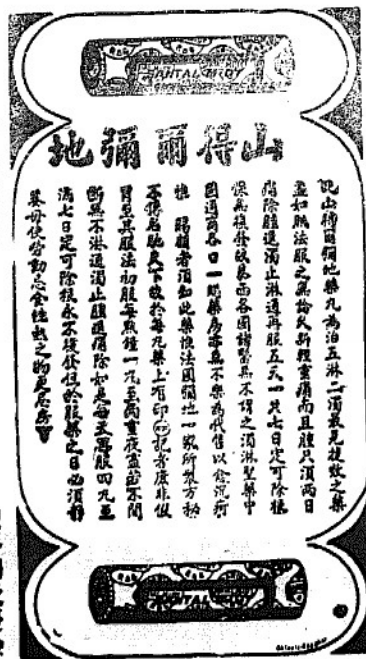 SANTAL MIDY
山得爾彌地
此山得爾彌地藥丸為治五淋二濁最見捷效之藥
如照法服之無論久新輕重痛而且腫只須兩日
痛除腫退濁止淋通再服五天一共七日定可除根
保無復發故泰西各國諸醫無不謂之濁淋聖藥中
國通商各口一號藥房亦無不樂為代售以愈沉疴
惟 賜顧者須知此藥惟法國彌地一家所製方秘
不傳名馳天下故於每丸藥上有印記者庶非假
冒至其服法初服每點鐘一丸至兩晝夜不間
斷無不淋通濁止腫退痛除如是每天再服四丸至
滿七日定可除根永不復發但於服藥之日必須靜
養毋使勞動忌食熱之物更忌房事
SANTAL MIDY